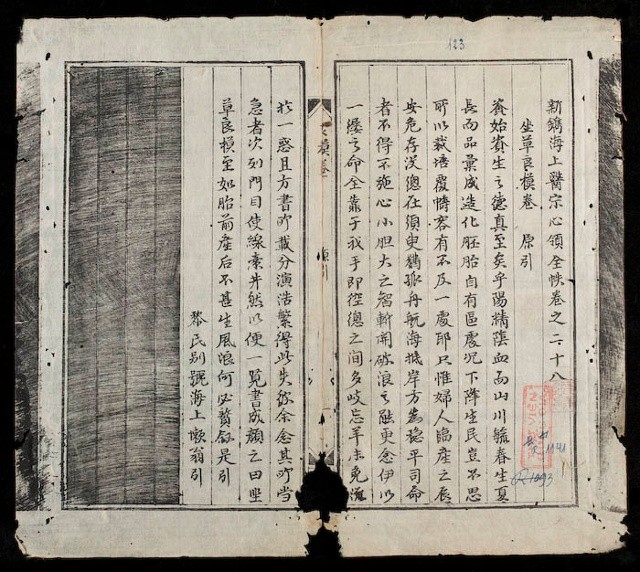 123
新鐫海上醫宗心領全帙卷之二十八
坐草良模卷 原引
資始資生之德真至矣乎陽精陰血而山川毓春生夏
長而品彙成造化胚胎自有區處況下陣生民豈不思
所以栽培覆幬容有不及一處耶只惟婦人臨產之辰
安危存没總在須臾猶孤舟航海機岸方為穩乎司命
者不得不施心小胆大之智斬開破浪之融更念伊以
一縷之命全靠于我手即徑總之間多岐忘羊未免滋
模卷 引
於一惑且方書所載分演浩繁得此失然余念其所当
急者次列門目使線索井然以便一覽書成顏之曰坐
草良模至如胎前産后不甚生風浪何必贅叙是引
黎氏別號海上懶翁引
1141